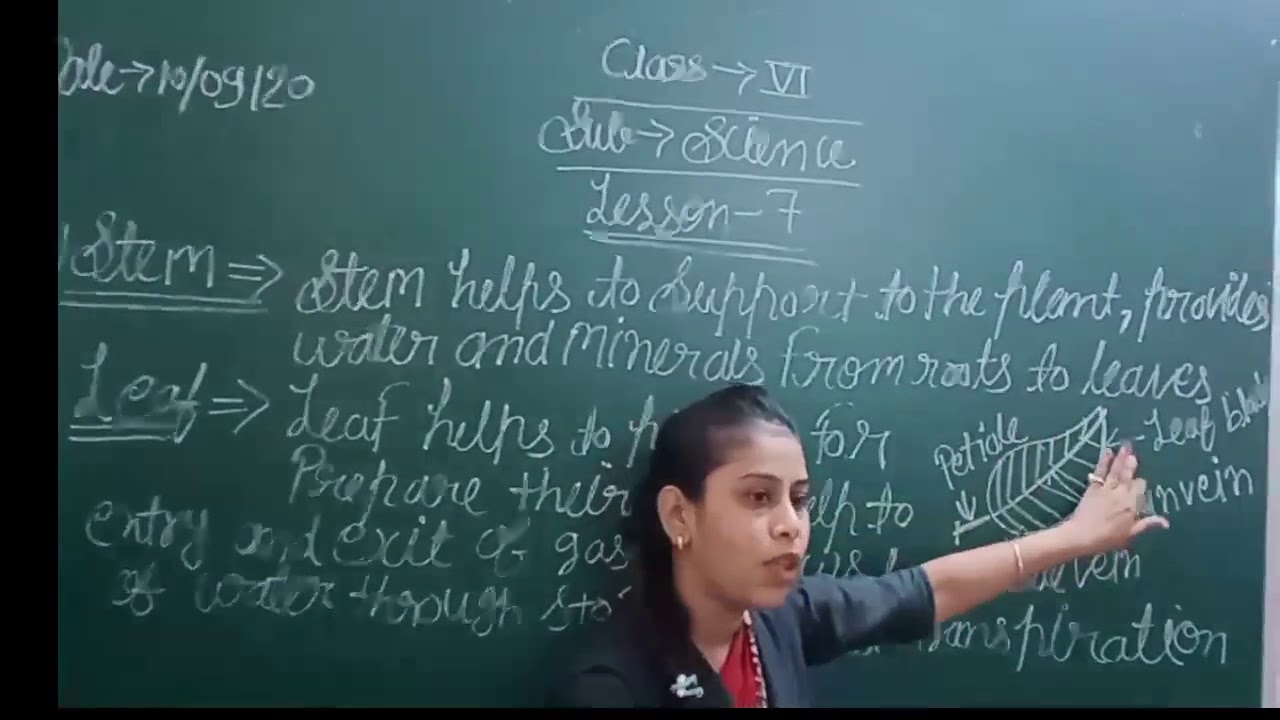 Date→10/09/20
Class→VI
Sub→Science
Lesson-7
Stem⇒ Stem helps to Support to the plant, provides
water and minerals from roots to leaves
Leaf⇒ Leaf helps to for
Prepare their to
entry and exit of gas
of water through sto
transpiration
Petiole
Leaf
vein